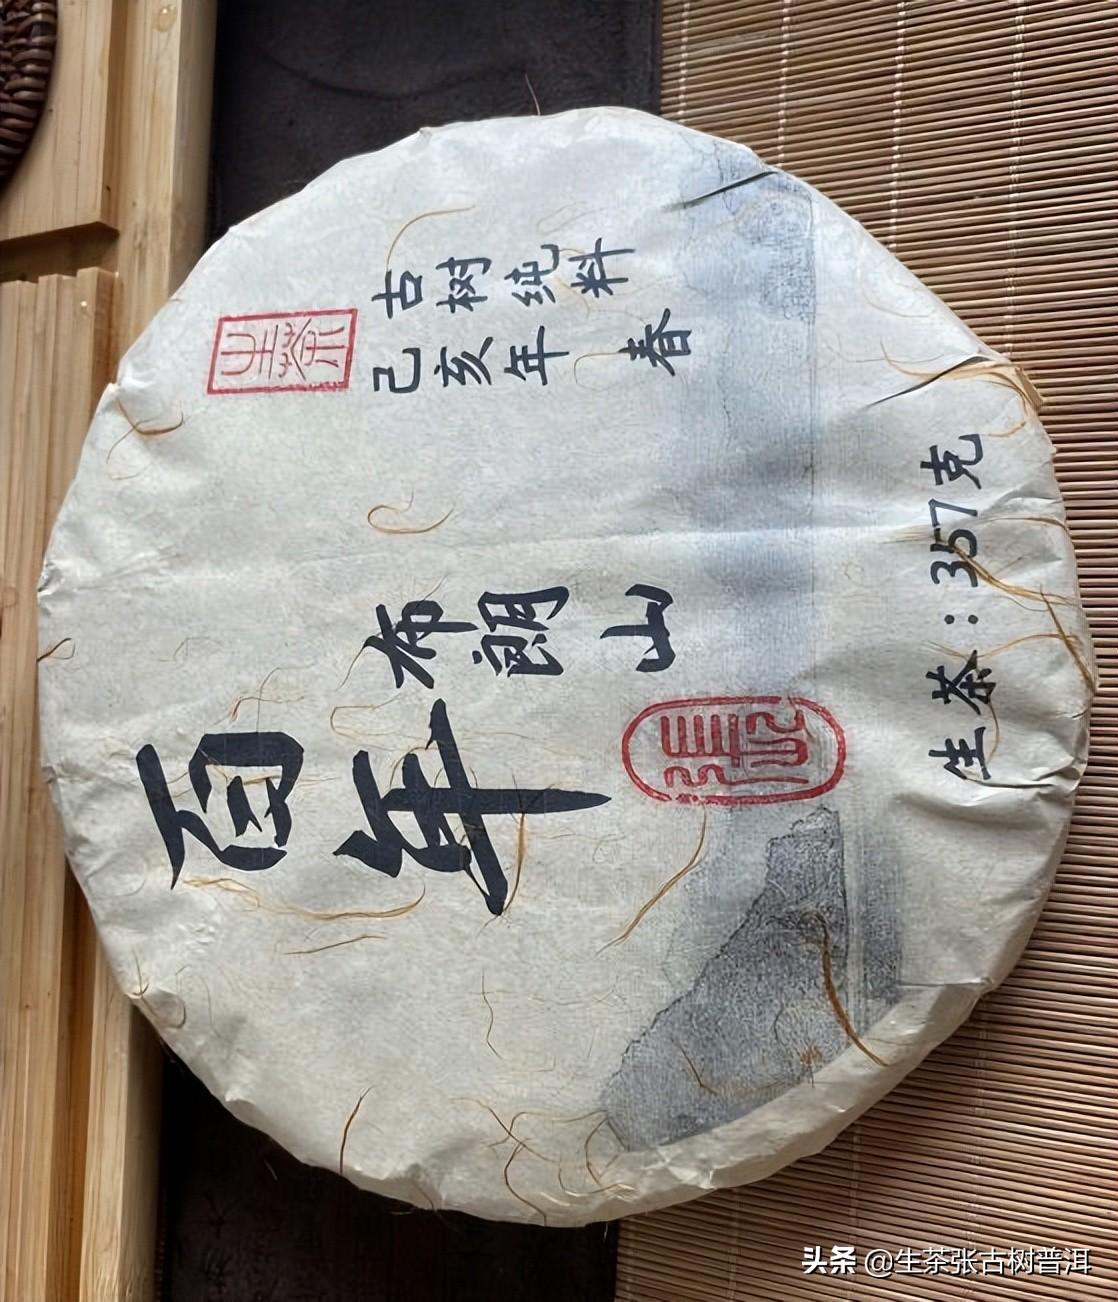 生茶
古树纯料
己亥年 春
布朗山
百年
張記
生茶：357克
头条 @生茶张古树普洱